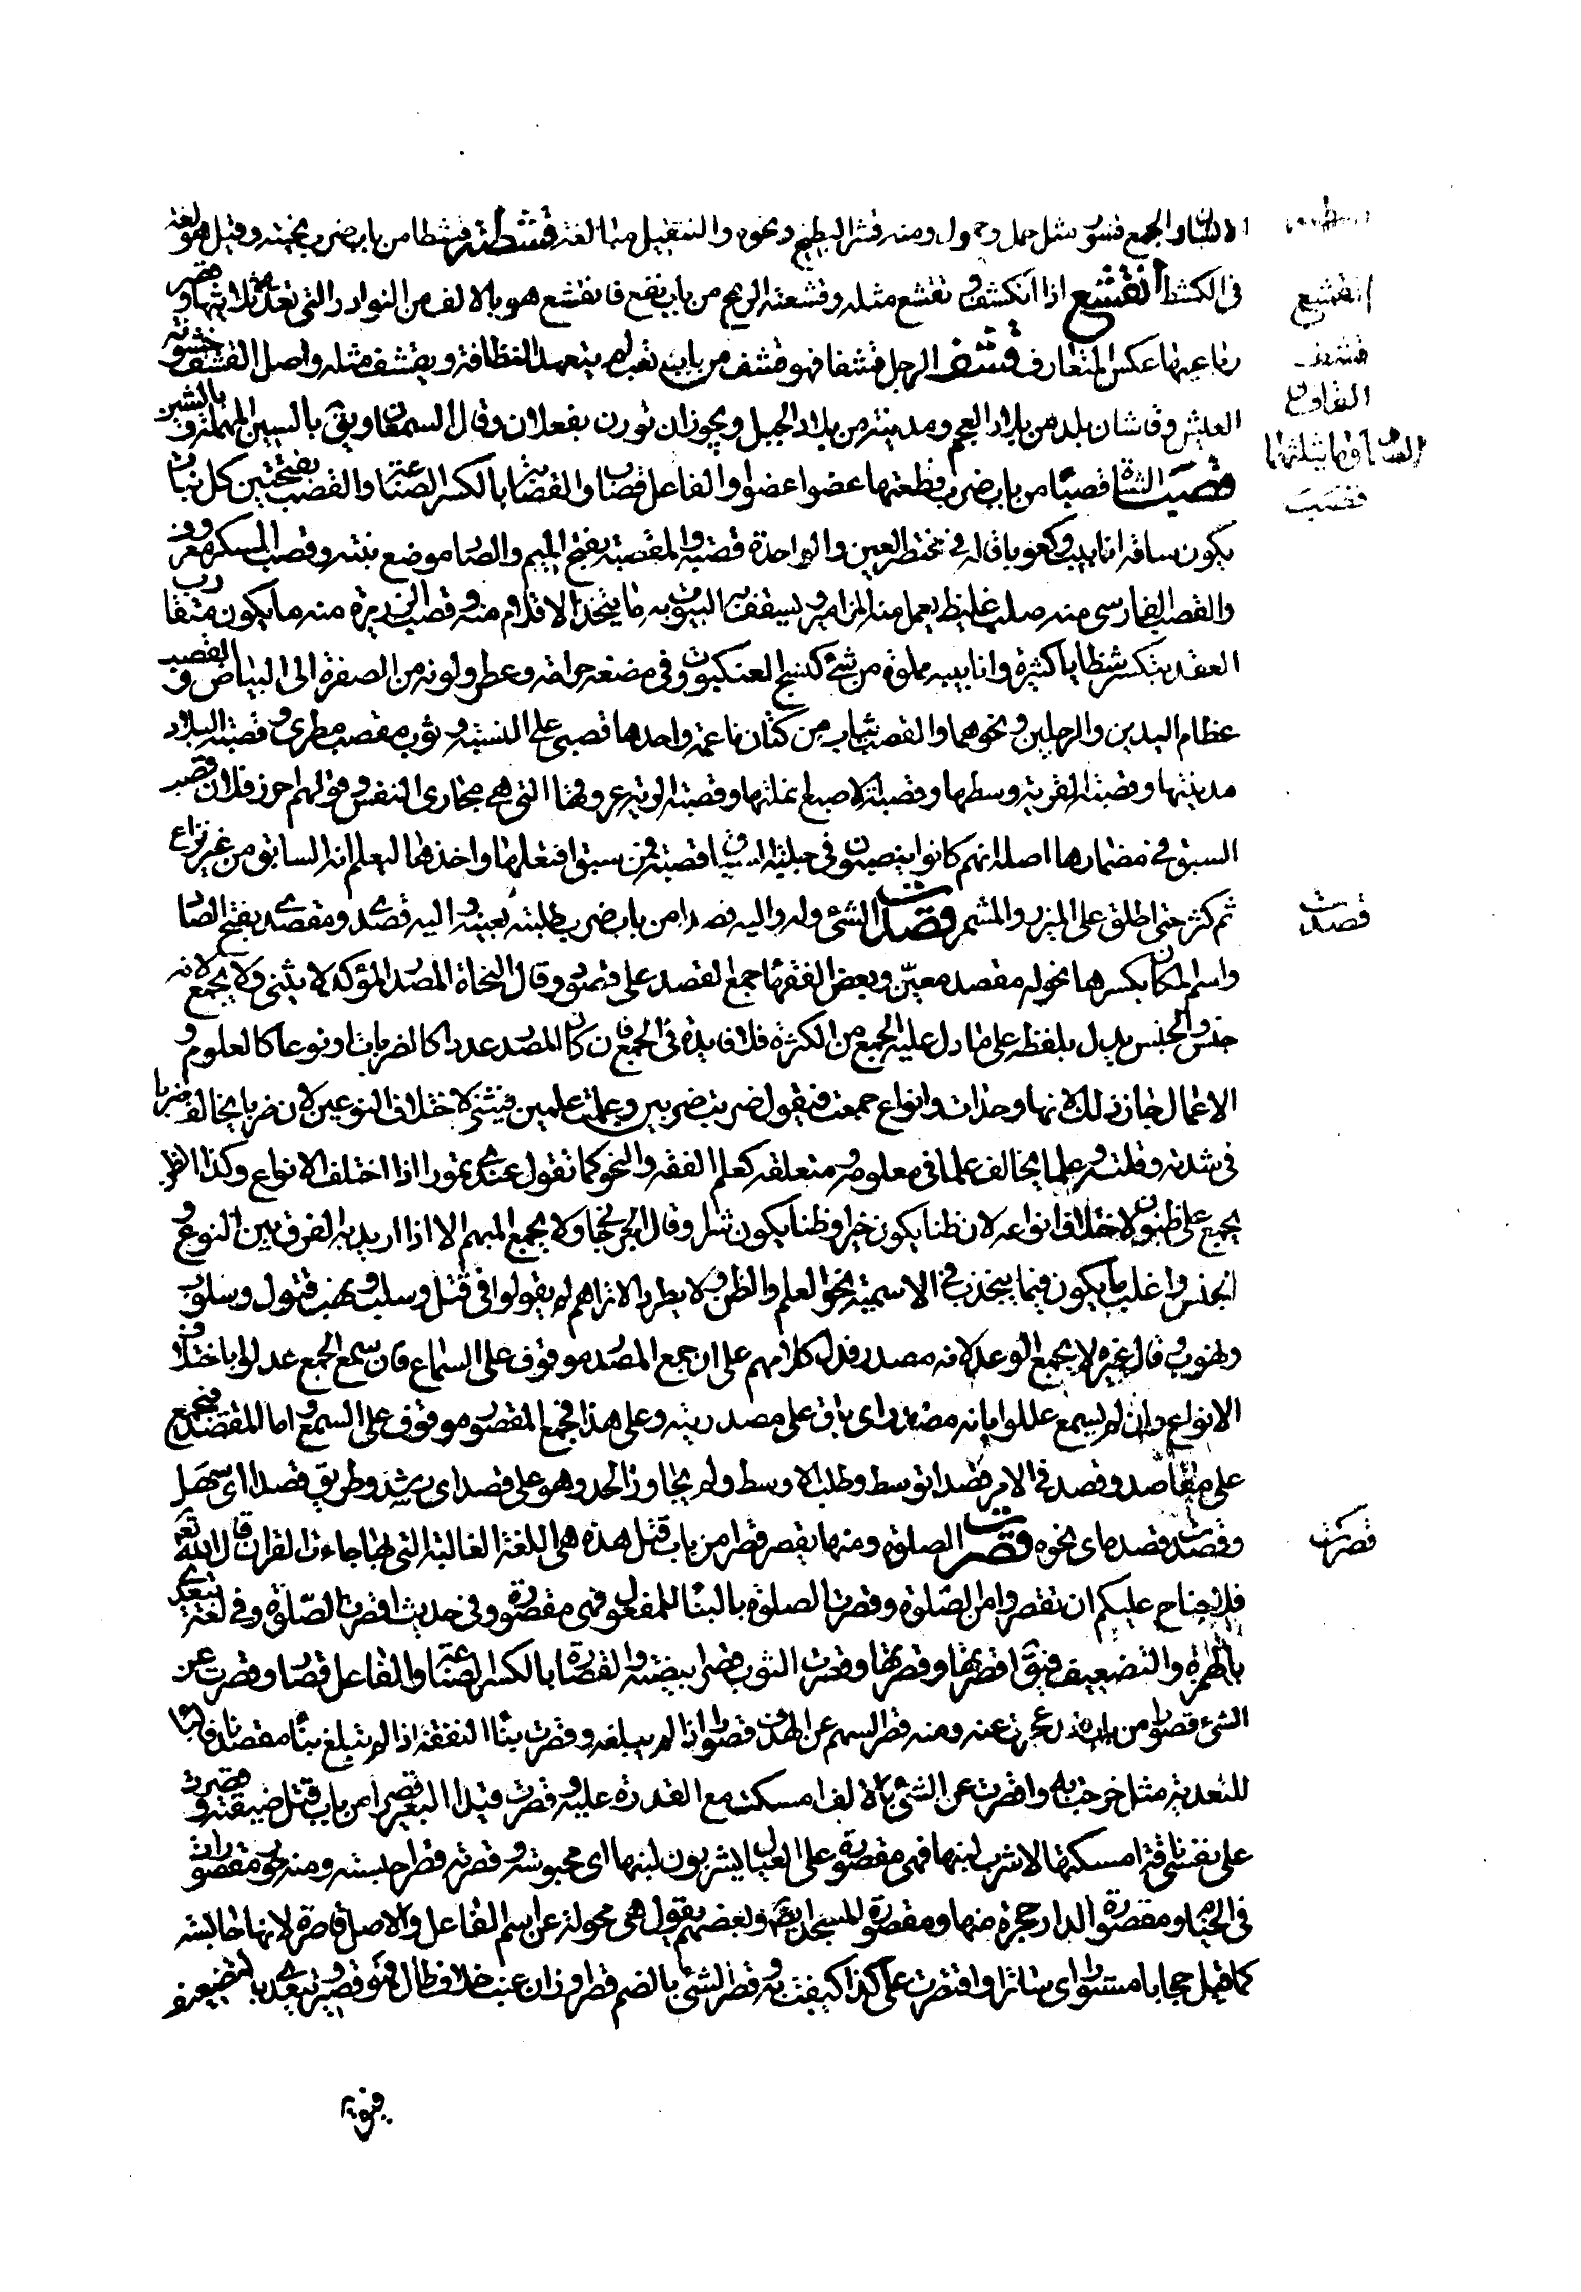 الانسان والجمع قشور مثل حمل وحمول ومنه قشر البطيخ ونحوه والتثقيل مبالغة قشطته قشطا من باب ضرب نحيته وقيل هو لغة
في الكشط انقشع اذا انكشف و تقشع مثله وقشعته الريح من باب نفع فاقشع هو بالالف من النوادر التي تعدى ثلاثيها وقصر
رباعيها عكس المتعارف قشف الرجل قشفا فهو قشف من باب تعب لم يتعهد النظافة و يقشف مثله واصل القشف خشونة
العيش وقاشان بلد من بلاد العجم ومدينة من بلاد الجبل ويجوز ان توزن بفعلان وقال السمعاني ويق بالسين المهملة و بالشين
قصبت الشاة قصبا من باب ضرب قطعتها عضوا عضوا والفاعل قصاب والقصابة بالكسر الصناعة والقصب بفتحتين كل نبات
يكون ساقه انابيب وكعوبا قاله في مختصر العين والواحدة قصبة و المقصبة بفتح الميم والصاد موضع نبته و قصب السكر معروف
والقصب الفارسي منه صلب غليظ يعمل منه المزامير و يسقف به البيوت به ما يتخذ الاقلام منه و قصب الذريرة منه ما يكون متقارب
العقد يتكسر شظايا كثيرة وانابيبه مملوة من شئ كنسج العنكبوت وفي مضغه حرافة وعطر ولونه من الصفرة الى البياض و القصب
عظام اليدين والرجلين و نحوهما والقصب ثياب من كتان ناعمة واحدها قصبي على النسبة و ثوب مقصب مطوي و قصبة البلاد
مدينتها وقصبة القرية وسطها وقصبة الاصبع نملتها وقصبة الرية عروقها التي هي مجاري النفس و قولهم احرز فلان قصب
السبق في مضمارها اصله انهم كانوا ينصبون في حلبة السباق قصبة فمن سبق اقتلعها واخذها ليعلم انه السابق من غير نزاع
ثم كثر حتى اطلق على المبرز والمشمر قصدت الشئ وله واليه قصدا من باب ضرب طلبته بعينه و اليه قصدي ومقصدي بفتح الصاد
واسم المكان بكسرها نحو له مقصد معيّن وبعض الفقهاء جمع القصد على قصود وقال النحاة المصدر المؤكد لا يثنى ولا يجمع لانه
جنس و الجنس يدل بلفظه على ما دل عليه الجمع من الكثرة فلا فايدة في الجمع فان كان المصدر عددا كالضربات او نوعا كالعلوم و
الاعمال جاز ذلك لانها وحدات وانواع جمعت فتقول ضربت ضربين وعلمت علمين فيثنى لاختلاف النوعين لان ضربا يخالف ضربا
في شدته وقلته و علما يخالف علما في معلومه و متعلقه كعلم الفقه والنحو كما تقول عندي تمور اذا اختلف الانواع وكذا الظن
يجمع على ظنون لاختلاف انواعه لان ظنا يكون خيرا وظنا يكون شرا وقال الجرجاني ولا يجمع المبهم الا اذا اريد به الفرق بين النوع و
الجنس واغلب ما يكون فيما ينجذب في الاسمية نحو العلم والظن و لا يطرد الا تراهم لم يقولوا في قتل وسلب و نهب قتول وسلوب
ونهوب و قال غيره لا يجمع الوعد لانه مصدر فدل كلامهم على ان جمع المصدر موقوف على السماع فان سمع الجمع عللوا باختلاف
الانواع وان لم يسمع عللوا بانه مصدر اى باق على مصدريته وعلى هذا فجمع القصد موقوف على السمع و اما المقصد فيجمع
على مقاصد وقصد في الامر قصدا توسط وطلب الاوسط ولم يجاوز الحد وهو على قصد اى رشد وطريق قصد اى سهل
وقصدت قصده اى نحوه قصرت الصلوة ومنها يقصر قصرا من باب قتل هذه هي اللغة الغالبة التي بها جاءت القران قال الله تع
فلا جناح عليكم ان تقصروا من الصلوة وقصرت الصلوة بالبناء للمفعول فهي مقصورة و في حديث اقصرت الصلوة وفي لغة يتعدى
بالهمزة والتضعيف فيق اقصرتها وقصرتها وقصرت الثوب قصرا بيضته والقصارة بالكسر الصناعة والفاعل قصار وقصرت عن
الشئ قصورا من باب قعد عجزت عنه ومنه قصر السهم عن الهدف قصورا اذا لم يبلغه وقصرت بنا النفقة اذا لم تبلغ بنا مقصدنا فالباء
للتعدية مثل خرجت به واقصرت عن الشئ بالالف امسكت مع القدرة عليه و قصرت قيد البعير قصرا من باب قتل ضيقته و قصرت
على نفسي ناقة امسكتها لاشرب لبنها فهي مقصورة على العيال يشربون لبنها اى محبوسة و قصرته قصرا حبسته ومنه حور مقصورات
في الخيام و مقصورة الدار حجرة منها ومقصورة المسجد ايضا و بعضهم يقول هي محولة عن اسم الفاعل والاصل قاصرة لانها حابسة
كما قيل حجابا مستورا اى ساترا واقتصرت على كذا اكتفيت به و قصر الشئ بالضم قصرا وزان عنب خلاف طال فهو قصير و يتعدى بالتضعيف
انقشع
قشف
القاوى
قصبت
قصدت
قصرت